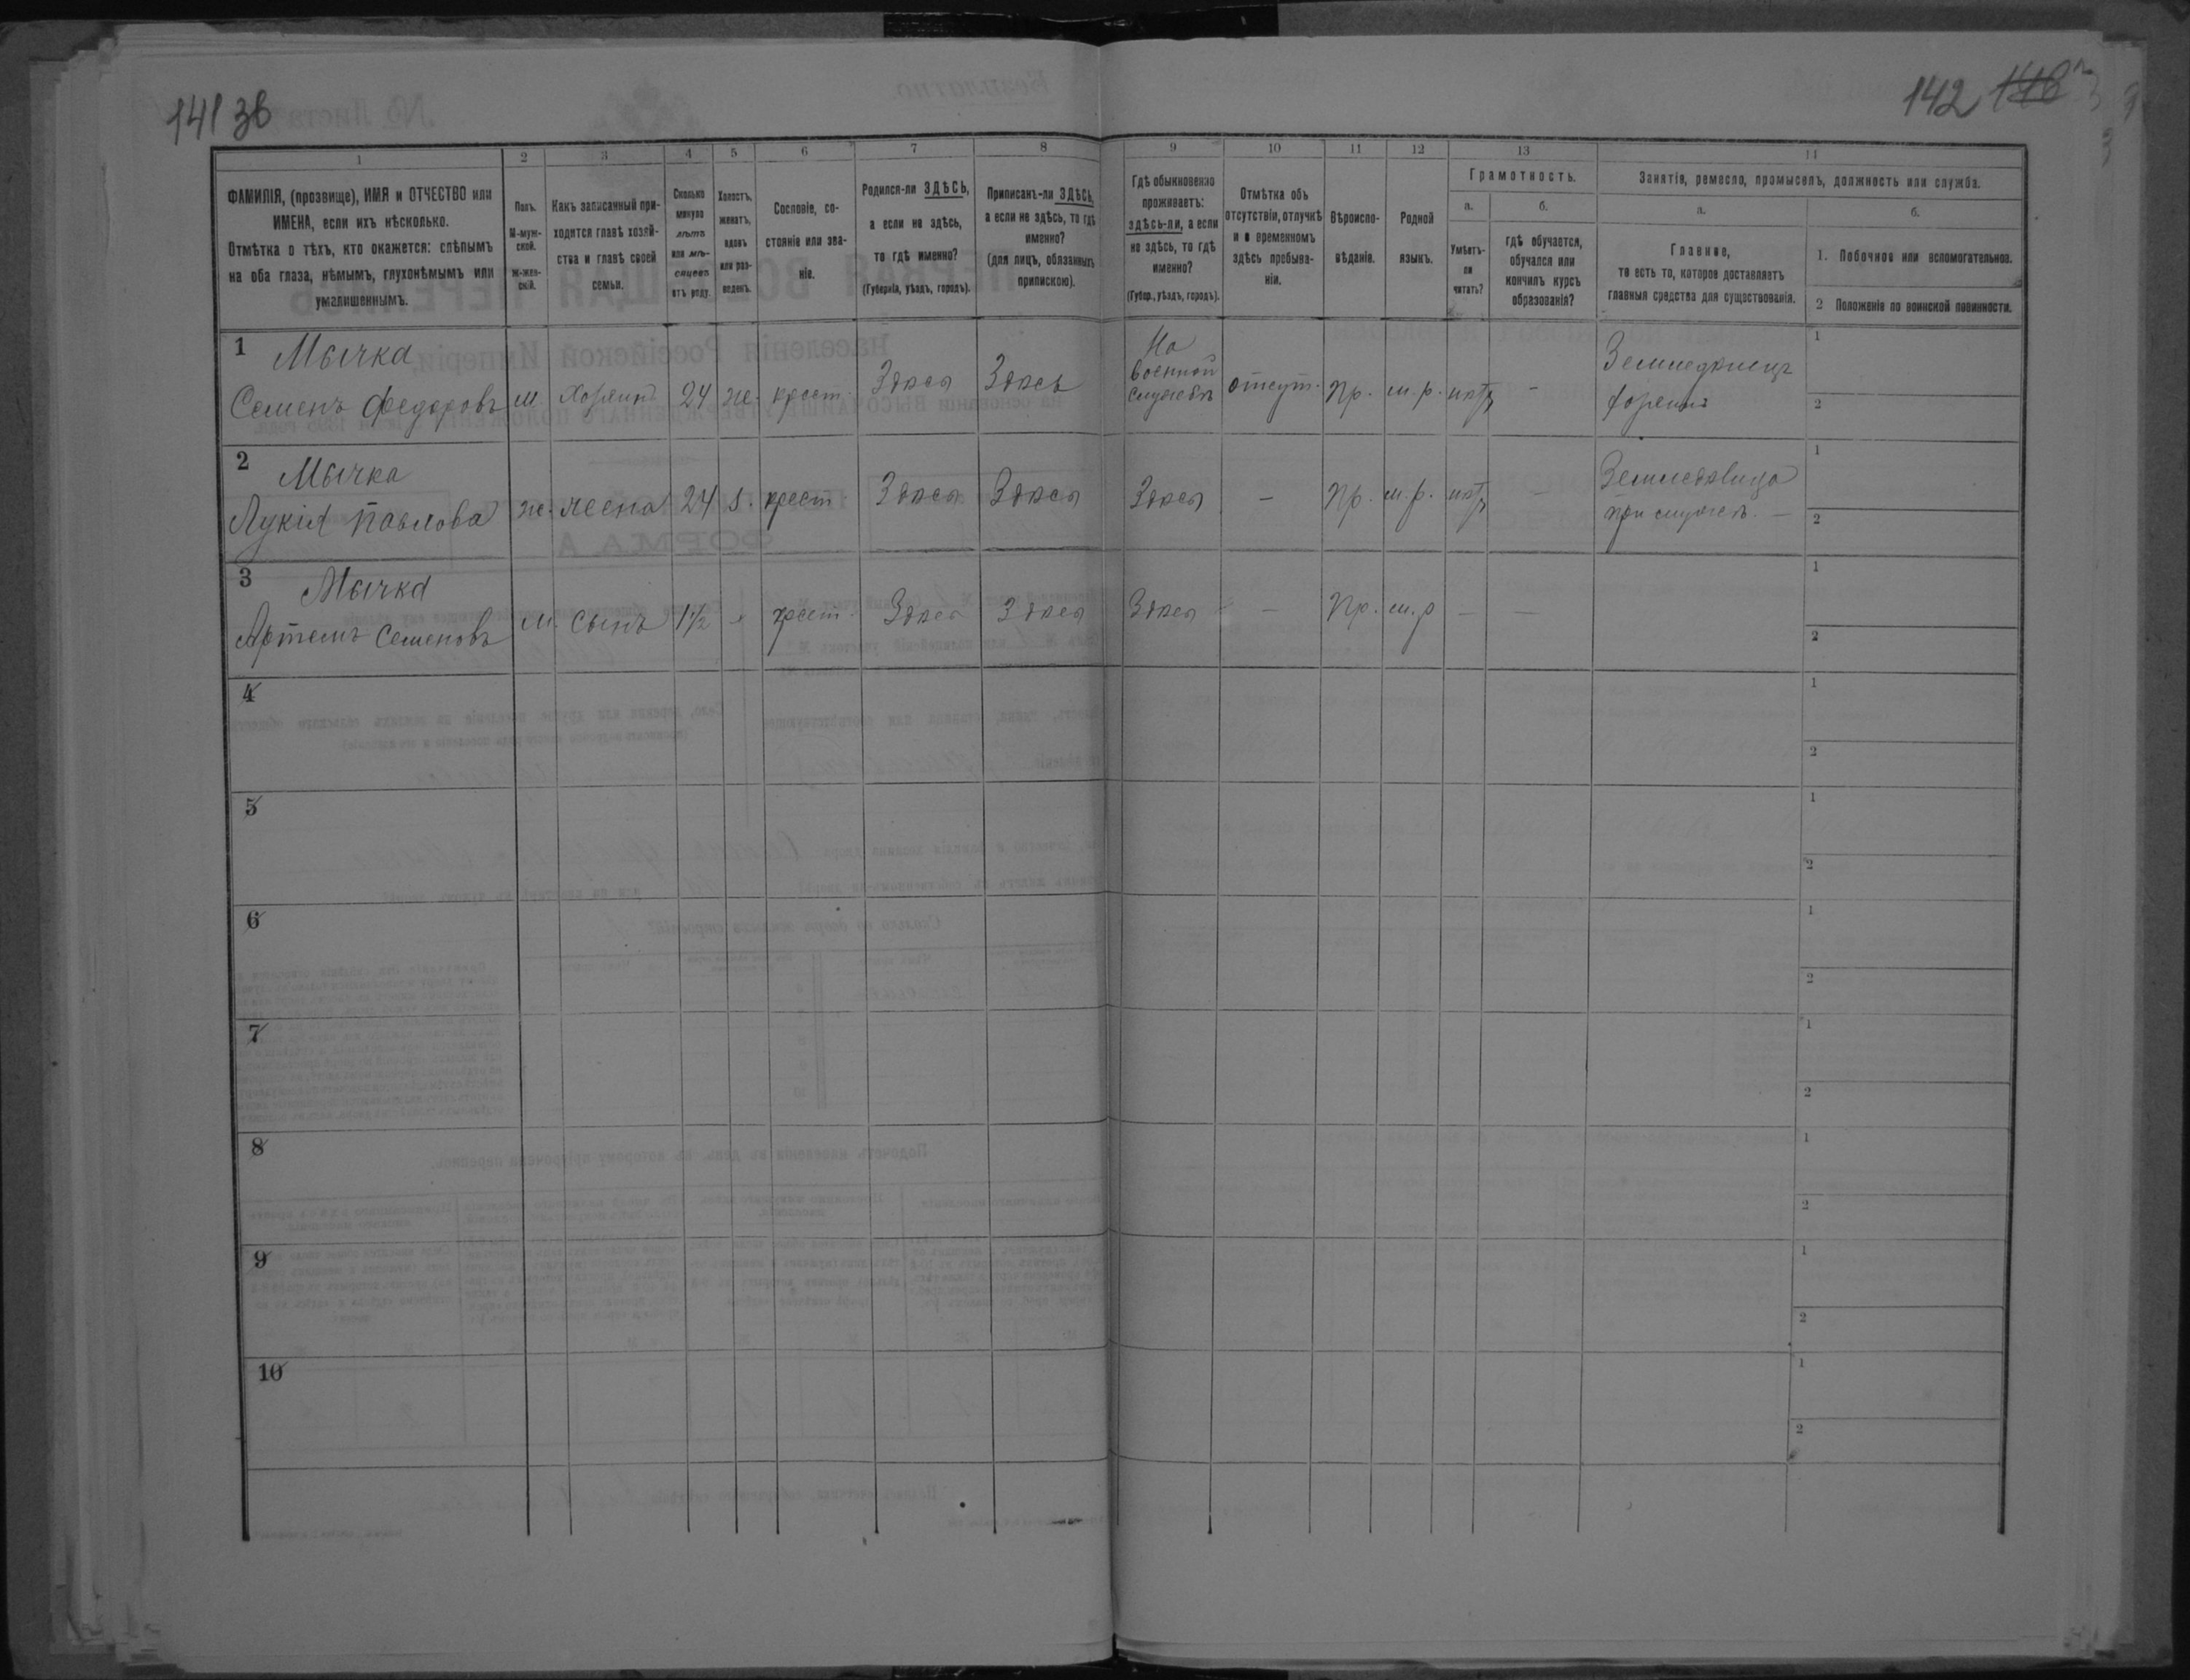 141 зв
142
1
2
3
4
5
6
7
8
9
10
11
12
13
14
ФАМИЛІЯ, (прозвище), ИМЯ и ОТЧЕСТВО или
ИМЕНА, если ихъ нѣсколько.
Отмѣтка о тѣхъ, кто окажется: слѣпымъ
на оба глаза, нѣмымъ, глухонѣмымъ или
умалишеннымъ.
Полъ.
М-муж-
ской.
Ж-жен-
скій.
Какъ записанный при-
ходится главѣ хозяй-
ства и главѣ своей
семьи.
Сколько
минуло
лѣтъ
или мѣ-
сяцевъ
отъ роду.
Холостъ,
женатъ,
вдовъ
или раз-
веденъ.
Сословіе, со-
стояніе или зва-
ніе.
Родился-ли ЗДѢСЬ,
а если не здѣсь,
то гдѣ именно?
(Губернія, уѣздъ, городъ).
Приписанъ-ли ЗДѢСЬ,
а если не здѣсь, то гдѣ
именно?
(для лицъ, обязанныхъ
припискою).
Гдѣ обыкновенно
проживаетъ:
здѣсь-ли, а если
не здѣсь, то гдѣ
именно?
(Губер., уѣздъ, городъ).
Отмѣтка объ
отсутствіи, отлучкѣ
и о временномъ
здѣсь пребыва-
ніи.
Вѣроиспо-
вѣданіе.
Родной
языкъ.
Грамотность.
а.
Умѣетъ-
ли
читать?
б.
гдѣ обучается,
обучался или
кончилъ курсъ
образованія?
Занятіе, ремесло, промыселъ, должность или служба.
а.
Главное,
то есть то, которое доставляетъ
главныя средства для существованія.
б.
1. Побочное или вспомогательное.
2 Положеніе по воинской повинности.
1 Мычка
Семенъ Федоровъ
м.
Хозяинъ
24
же.
крест.
Здѣсь
Здѣсь
На
военной
службѣ
отсут.
Пр.
м.р.
нѣтъ
-
Земледѣлецъ
хозяинъ
1
2
2 Мычка
Лукія Павлова
же.
жена
24
з.
крест.
Здѣсь
Здѣсь
Здѣсь
-
Пр.
м.р.
нѣтъ
-
Земледѣлица
при мужѣ. -
1
2
3 Мычка
Артемъ Семеновъ
м.
сынъ
1½
крест.
Здѣсь
Здѣсь
Здѣсь
-
Пр.
м.р
-
-
1
2
4
1
2
5
1
2
6
1
2
7
1
2
8
1
2
9
1
2
10
1
2